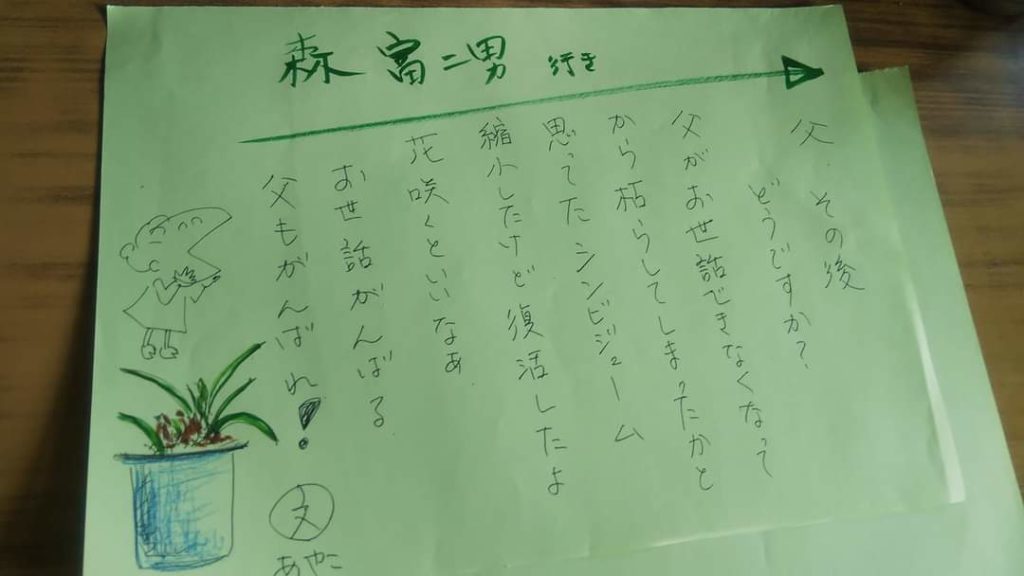 森 富二男 行き
父 その後
どうですか?
父がお世話できなくなって
から枯らしてしまったかと
思ってたシンビジューム
縮小したけど復活したよ
花咲くといいなぁ
お世話がんばる
父もがんばれ!
文
あやこ